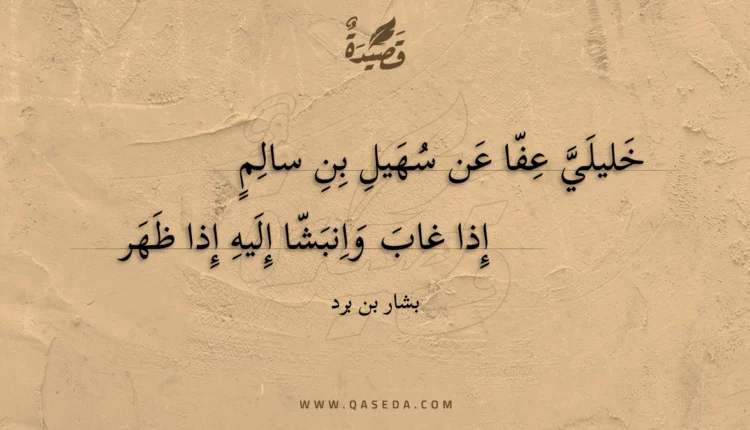 قَصِيدَةٌ
خَليلَيَّ عِفّا عَن سُهَيلِ بِنِ سالِمٍ
إِذا غابَ وَاِنبَشّا إِلَيهِ إِذا ظَهَر
بشار بن برد
WWW.QASEDA.COM